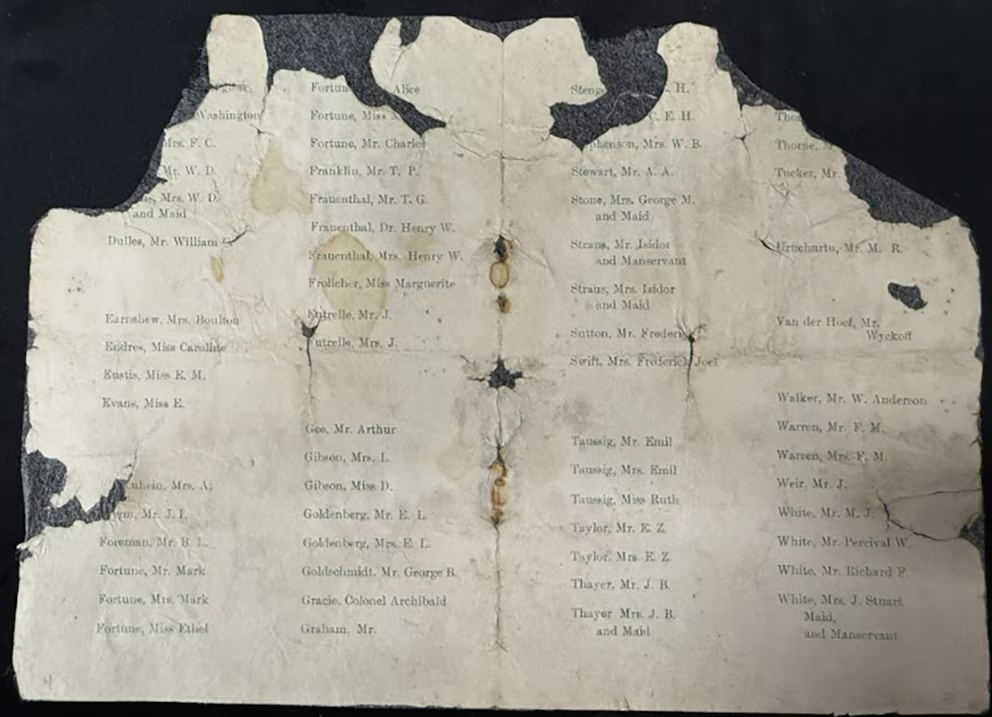 Washington
Mrs. F. C.
Mr. W. D.
Mrs. W. D.
and Maid
Dulles, Mr. William
Earnshew, Mrs. Boulton
Endres, Miss Caroline
Eustis, Miss E. M.
Evans, Miss E.
Mrs. A.
Mr. J. I.
Foreman, Mr. B. L.
Fortune, Mr. Mark
Fortune, Mrs. Mark
Fortune, Miss Ethel
Fortun Alice
Fortune, Miss
Fortune, Mr. Charles
Franklin, Mr. T. P.
Frauenthal, Mr. T. G.
Frauenthal, Dr. Henry W.
Frauenthal, Mrs. Henry W.
Frolicher, Miss Marguerite
Futrelle, Mr. J.
Futrelle, Mrs. J.
Gee, Mr. Arthur
Gibson, Mrs. L.
Gibson, Miss D.
Goldenberg, Mr. E. L.
Goldenberg, Mrs. E. L.
Goldschmidt, Mr. George B.
Gracie, Colonel Archibald
Graham, Mr.
Steng H.
C. E. H.
phenson, Mrs. W. B.
Stewart, Mr. A. A.
Stone, Mrs. George M.
and Maid
Straus, Mr. Isidor
and Manservant
Straus, Mrs. Isidor
and Maid
Sutton, Mr. Frederick
Swift, Mrs. Frederick Joel
Taussig, Mr. Emil
Taussig, Mrs. Emil
Taussig, Miss Ruth
Taylor, Mr. E. Z.
Taylor, Mrs. E. Z.
Thayer, Mr. J. B.
Thayer Mrs. J. B.
and Maid
Thor
Thorne,
Tucker, Mr.
Uruchurtu, Mr. M. R.
Van der Hoef, Mr.
Wyckoff
Walker, Mr. W. Anderson
Warren, Mr. F. M.
Warren, Mrs. F. M.
Weir, Mr. J.
White, Mr. M. J.
White, Mr. Percival W.
White, Mr. Richard F.
White, Mrs. J. Stuart
Maid,
and Manservant